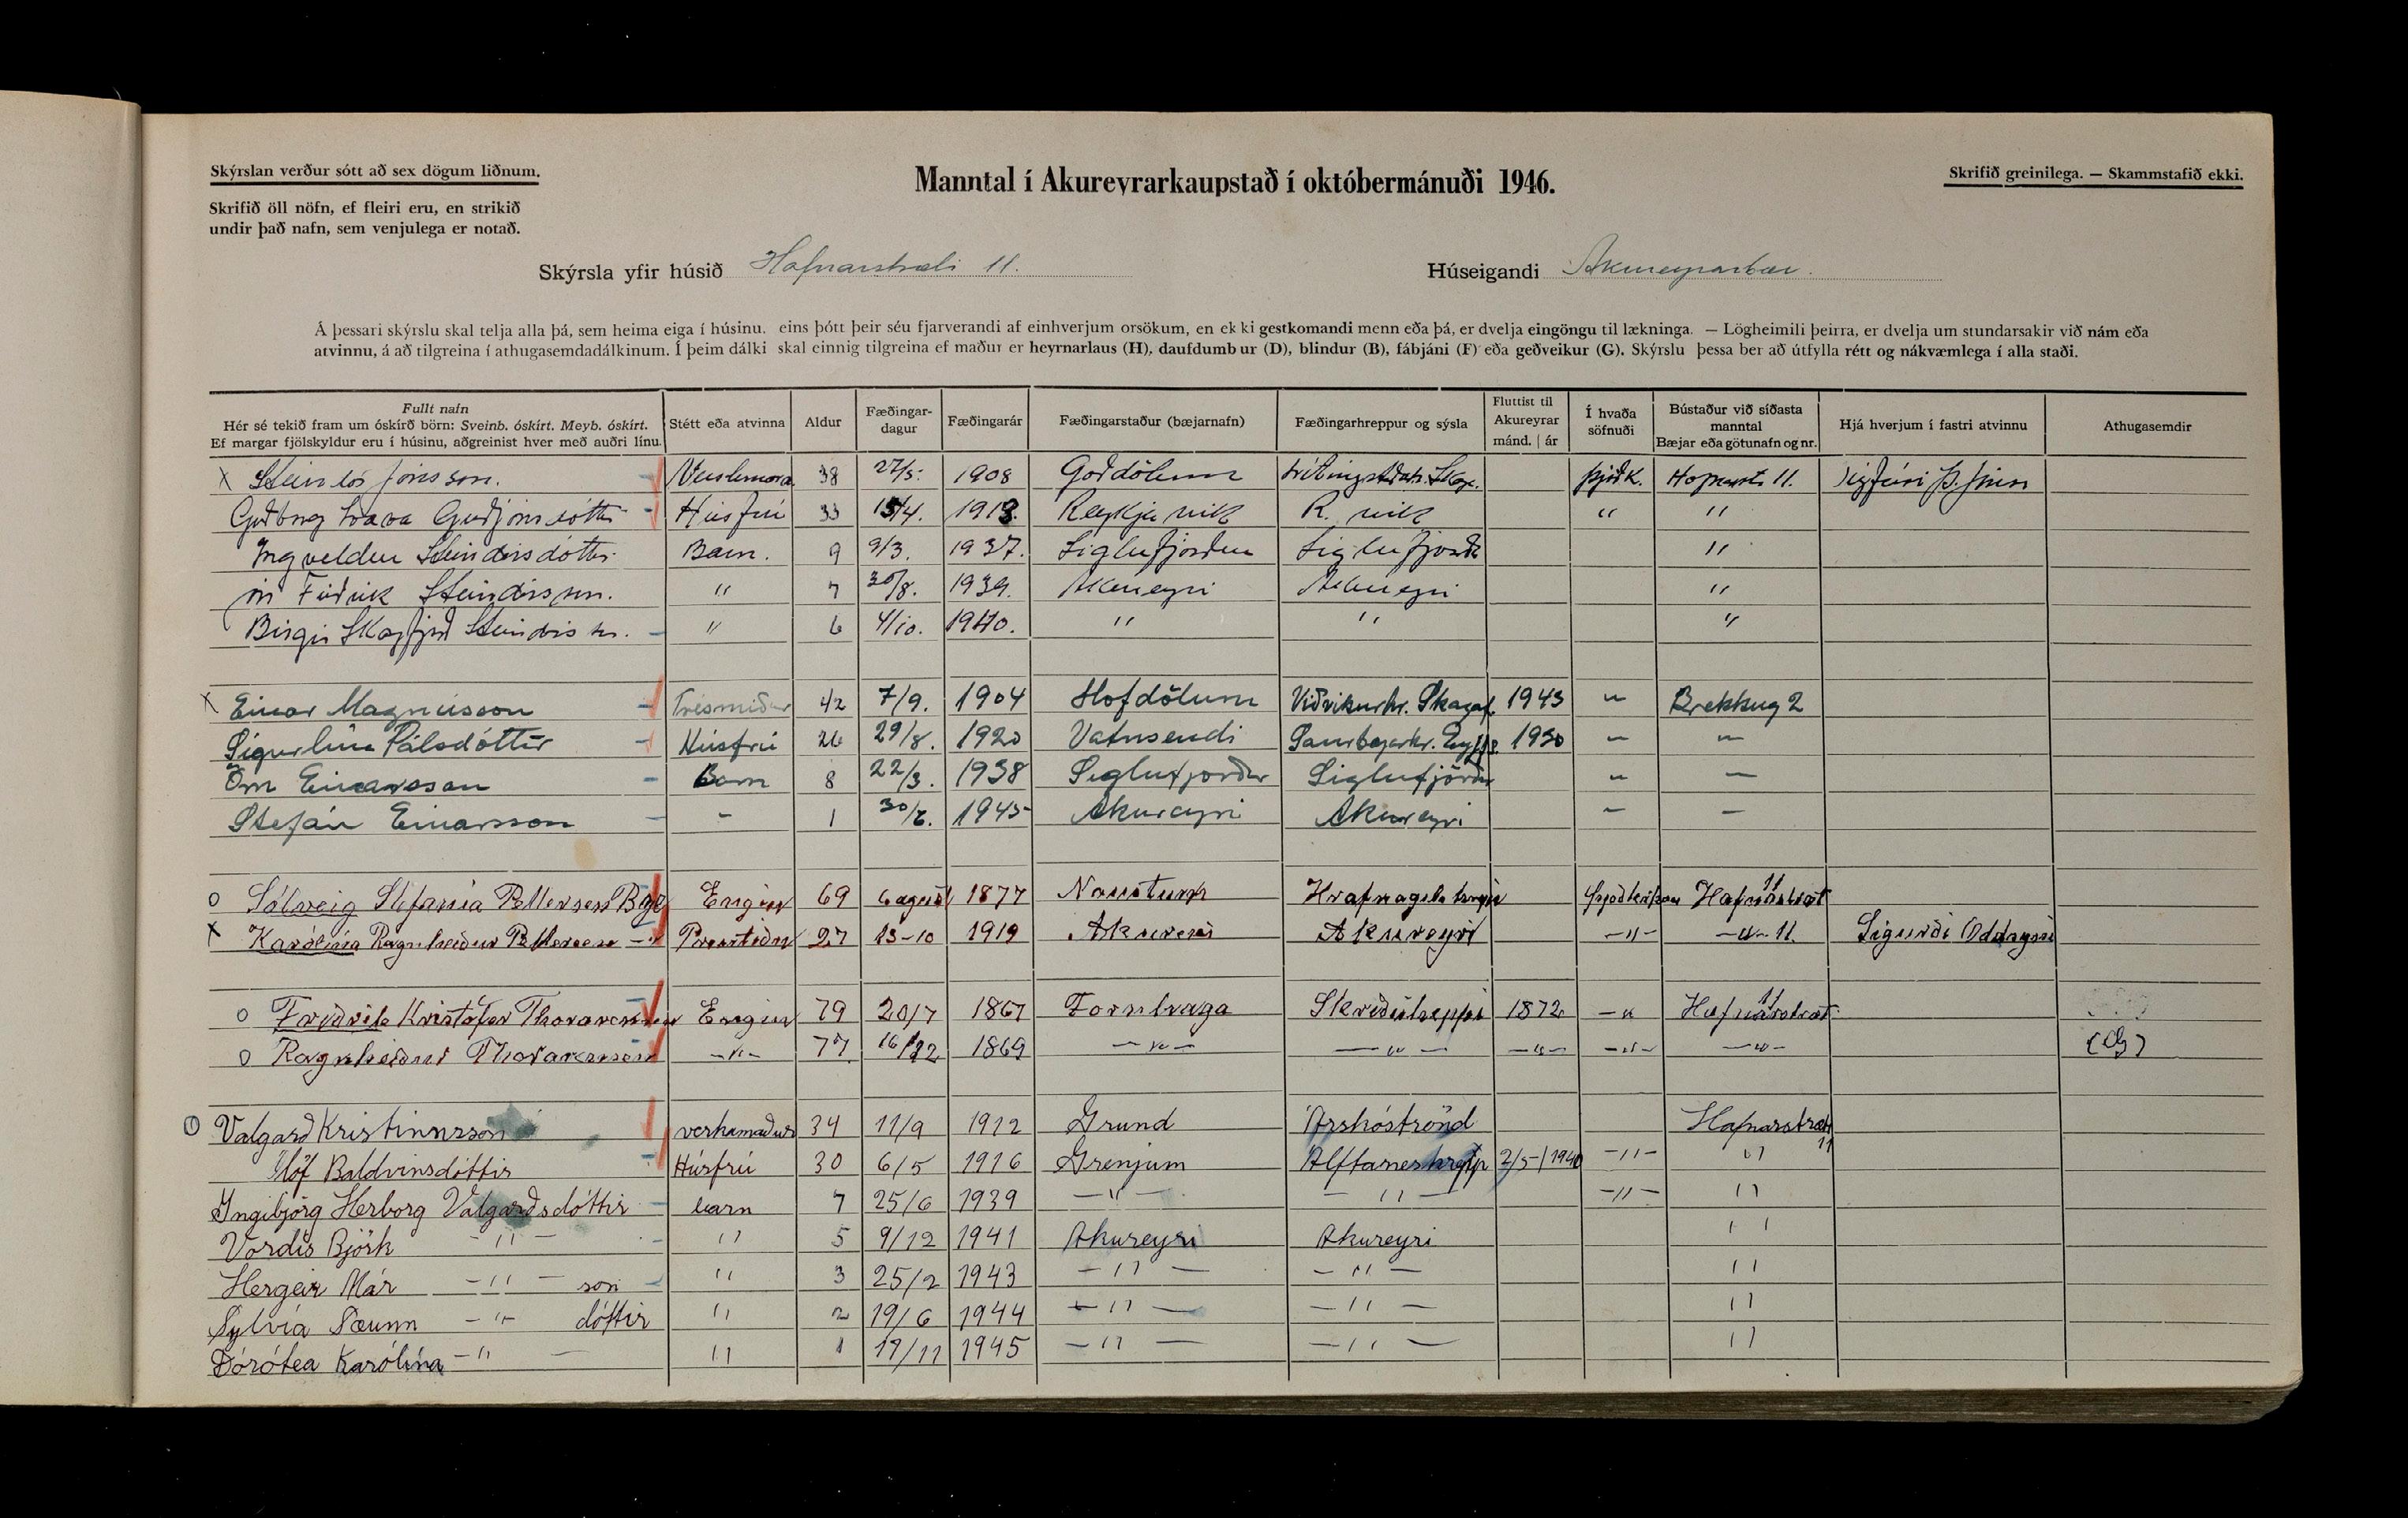 Skýrslan verður sótt að sex dögum liðnum.
Manntal í Akureyrarkaupstað í októbermánuði 1946.
Skrifið greinilega. — Skammstafið ekki.
Skrifið öll nöfn, ef fleiri eru, en strikið
undir það nafn, sem venjulega er notað.
Skýrsla yfir húsið Hafnarstræti 11. Húseigandi Akureyrarbær.
Á þessari skýrslu skal telja alla þá, sem heima eiga í húsinu. eins þótt þeir séu fjarverandi af einhverjum orsökum, en ekki gestkomandi menn eða þá, er dvelja eingöngu til lækninga. — Lögheimili þeirra, er dvelja um stundarsakir við nám eða
atvinnu, á að tilgreina í athugasemdadálkinum. Í þeim dálki skal einnig tilgreina ef maður er heyrnarlaus (H), daufdumbur (D), blindur (B), fábjáni (F) eða geðveikur (G). Skýrslu þessa ber að útfylla rétt og nákvæmlega í alla staði.
Fullt nafn
Hér sé tekið fram um óskírð börn: Sveinb. óskírt. Meyb. óskírt.
Ef margar fjölskyldur eru í húsinu, aðgreinist hver með auðri línu.
Stétt eða atvinna
Aldur
Fæðingar-
dagur
Fæðingarár
Fæðingarstaður (bæjarnafn)
Fæðingarhreppur og sýsla
Fluttist til
Akureyrar
mánd. | ár
Í hvaða
söfnuði
Bústaður við síðasta
manntal
Bæjar eða götunafn og nr.
Hjá hverjum í fastri atvinnu
Athugasemdir
x Steindór Jónsson. 38 27/5. 1908 Goðdölum Þjóðk. 11.
Guðbjörg Svava Guðjónsdóttir Húsfrú 33 15/4. 1913. Reykjavik R. vik " "
Ingveldur Steindórsdóttir Barn. 9 9/3. 1937. Siglufjörður Siglufjörð "
Friðrik Steindórsson. " 7 30/8. 1939. Akureyri Akureyri "
Birgir Skagfjörð Steindórss. " 6 4/10. 1940. " " "
x Einar Magnússon Trésmiður 42 7/9. 1904 Hofdölum Viðvikurhr. Skagaf. 1943 " Brekkug 2
Sigurlína Pálsdóttir Húsfrú 26 29/8. 1920 Vatnsendi Saurbæjarhr. Eyjf. 1930 " "
Örn Einarsson Barn 8 22/3. 1938 Siglufjörður Siglufjörður " —
Stefán Einarsson - 1 1945 Akureyri Akureyri - —
o Sólveig Stefanía Pettersen Engin 69 6 ágúst 1877 Naustum Hrafnagilshreppi Hafnarstræt 11
x Karólína Ragnheiður Pettersen 27 13-10 1919 Akureyri Akureyri —"— —"— 11. Sigurði
o Friðrik Kristófer Thorarensen Engin 79 20/7 1867 Fornhaga Skriðuhreppi 1872 —" Hafnarstræt 11
o Ragnheiður Thorarensen —"— 77 16/12 1869 —"— —"— —"— —"— —"—
o Valgarð Kristinnsson verkamaður 34 11/9 1912 Grund Árskóströnd Hafnarstræti 11
Ólöf Baldvinsdóttir Húsfrú 30 6/5 1916 Grenjum Álftaneshrepp 2/5-1940 —"— "
Ingibjörg Herborg Valgarðsdóttir barn 7 25/6 1939 —"— —"— —"— "
Vordís Björk —"— " 5 9/12 1941 Akureyri Akureyri "
Hergeir Már —"— son " 3 25/2 1943 —"— —"— "
Sylvía Þórunn —"— dóttir " 2 19/6 1944 —"— —"— "
Dórótea Karólína —"— " 1 17/11 1945 —"— —"— "